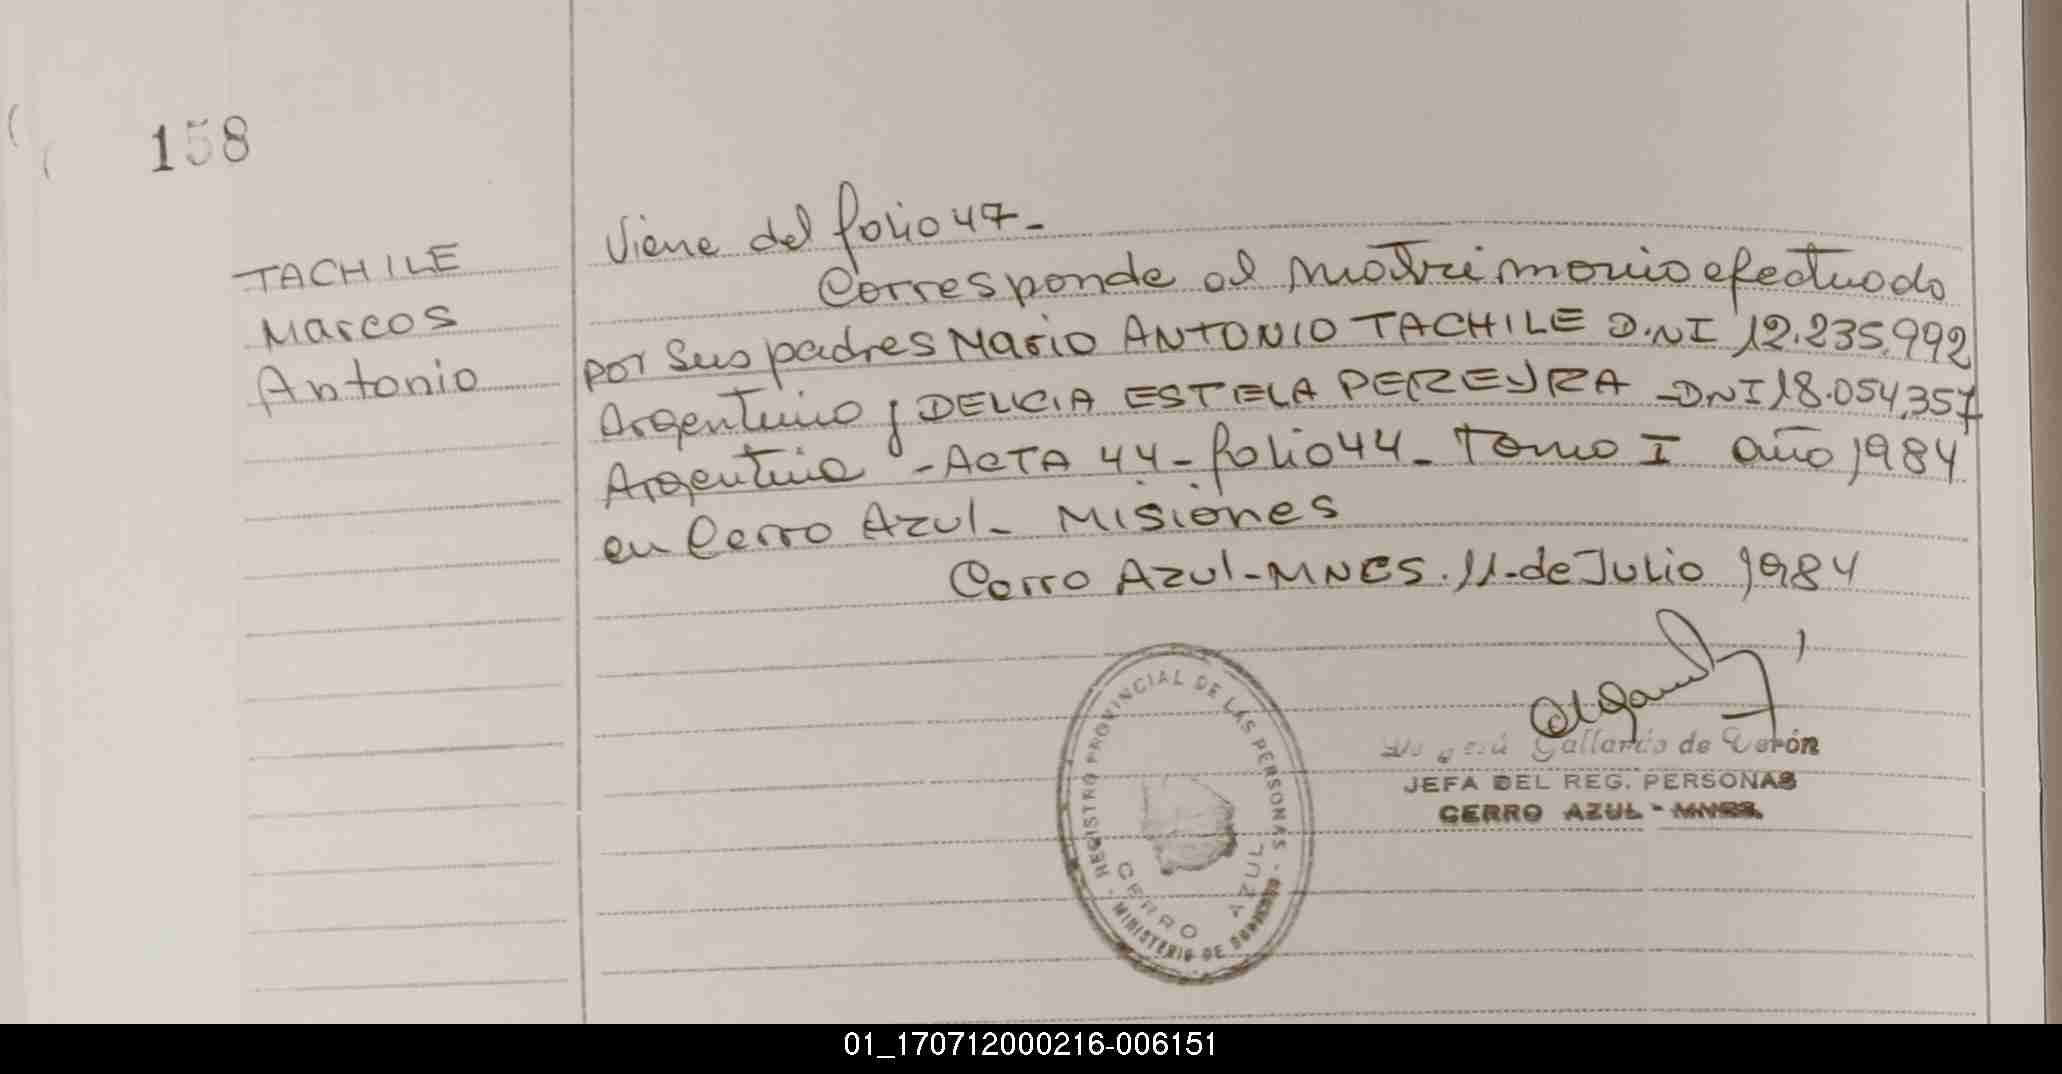 158
TACHILE
Marcos
Antonio
Viene del folio 47-
Corresponde al Matrimonio efectuado
por sus padres Mario ANTONIO TACHILE D.NI 12.235.992
Argentino y DELICIA ESTELA PEREYRA -DNI 18.054.357
Argentina - ACTA 44 - folio 44 - Tomo I año 1984
en Cerro Azul - Misiones
Cerro Azul - MNES. 11 - de Julio 1984
REGISTRO PROVINCIAL DE LAS PERSONAS
CERRO AZUL
MINISTERIO DE
Gallardo de Verón
JEFA DEL REG. PERSONAS
CERRO AZUL - MNES.
01_170712000216-006151